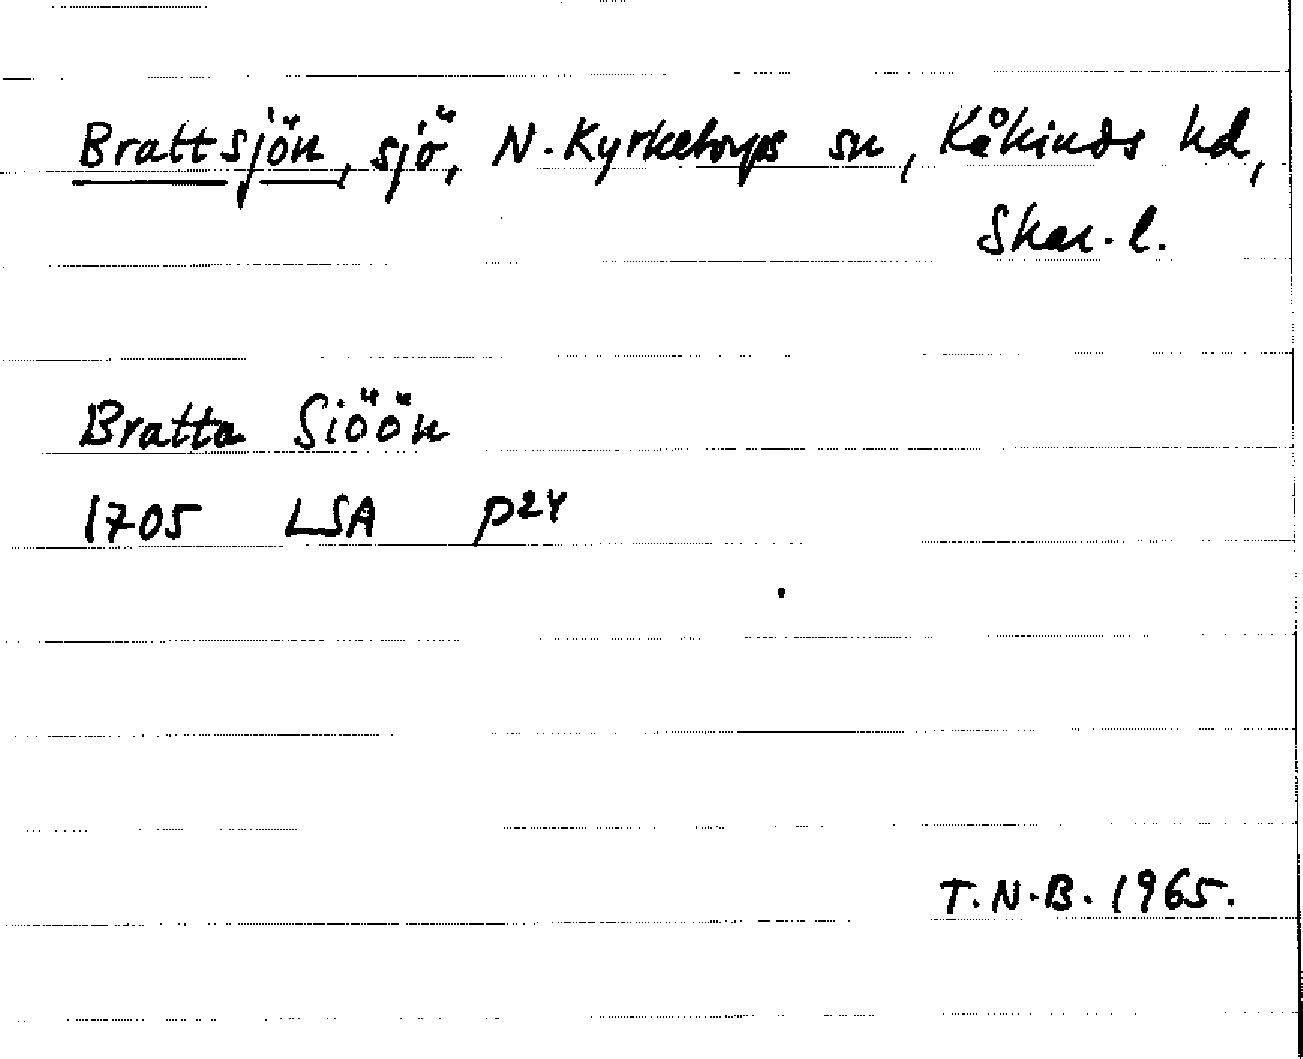 Brattsjön, sjö, N. Kyrketorps sn, Kåkinds hd,
Skar. l.
Bratta Siöön
1705 LSA P24
T.N.B. 1965.